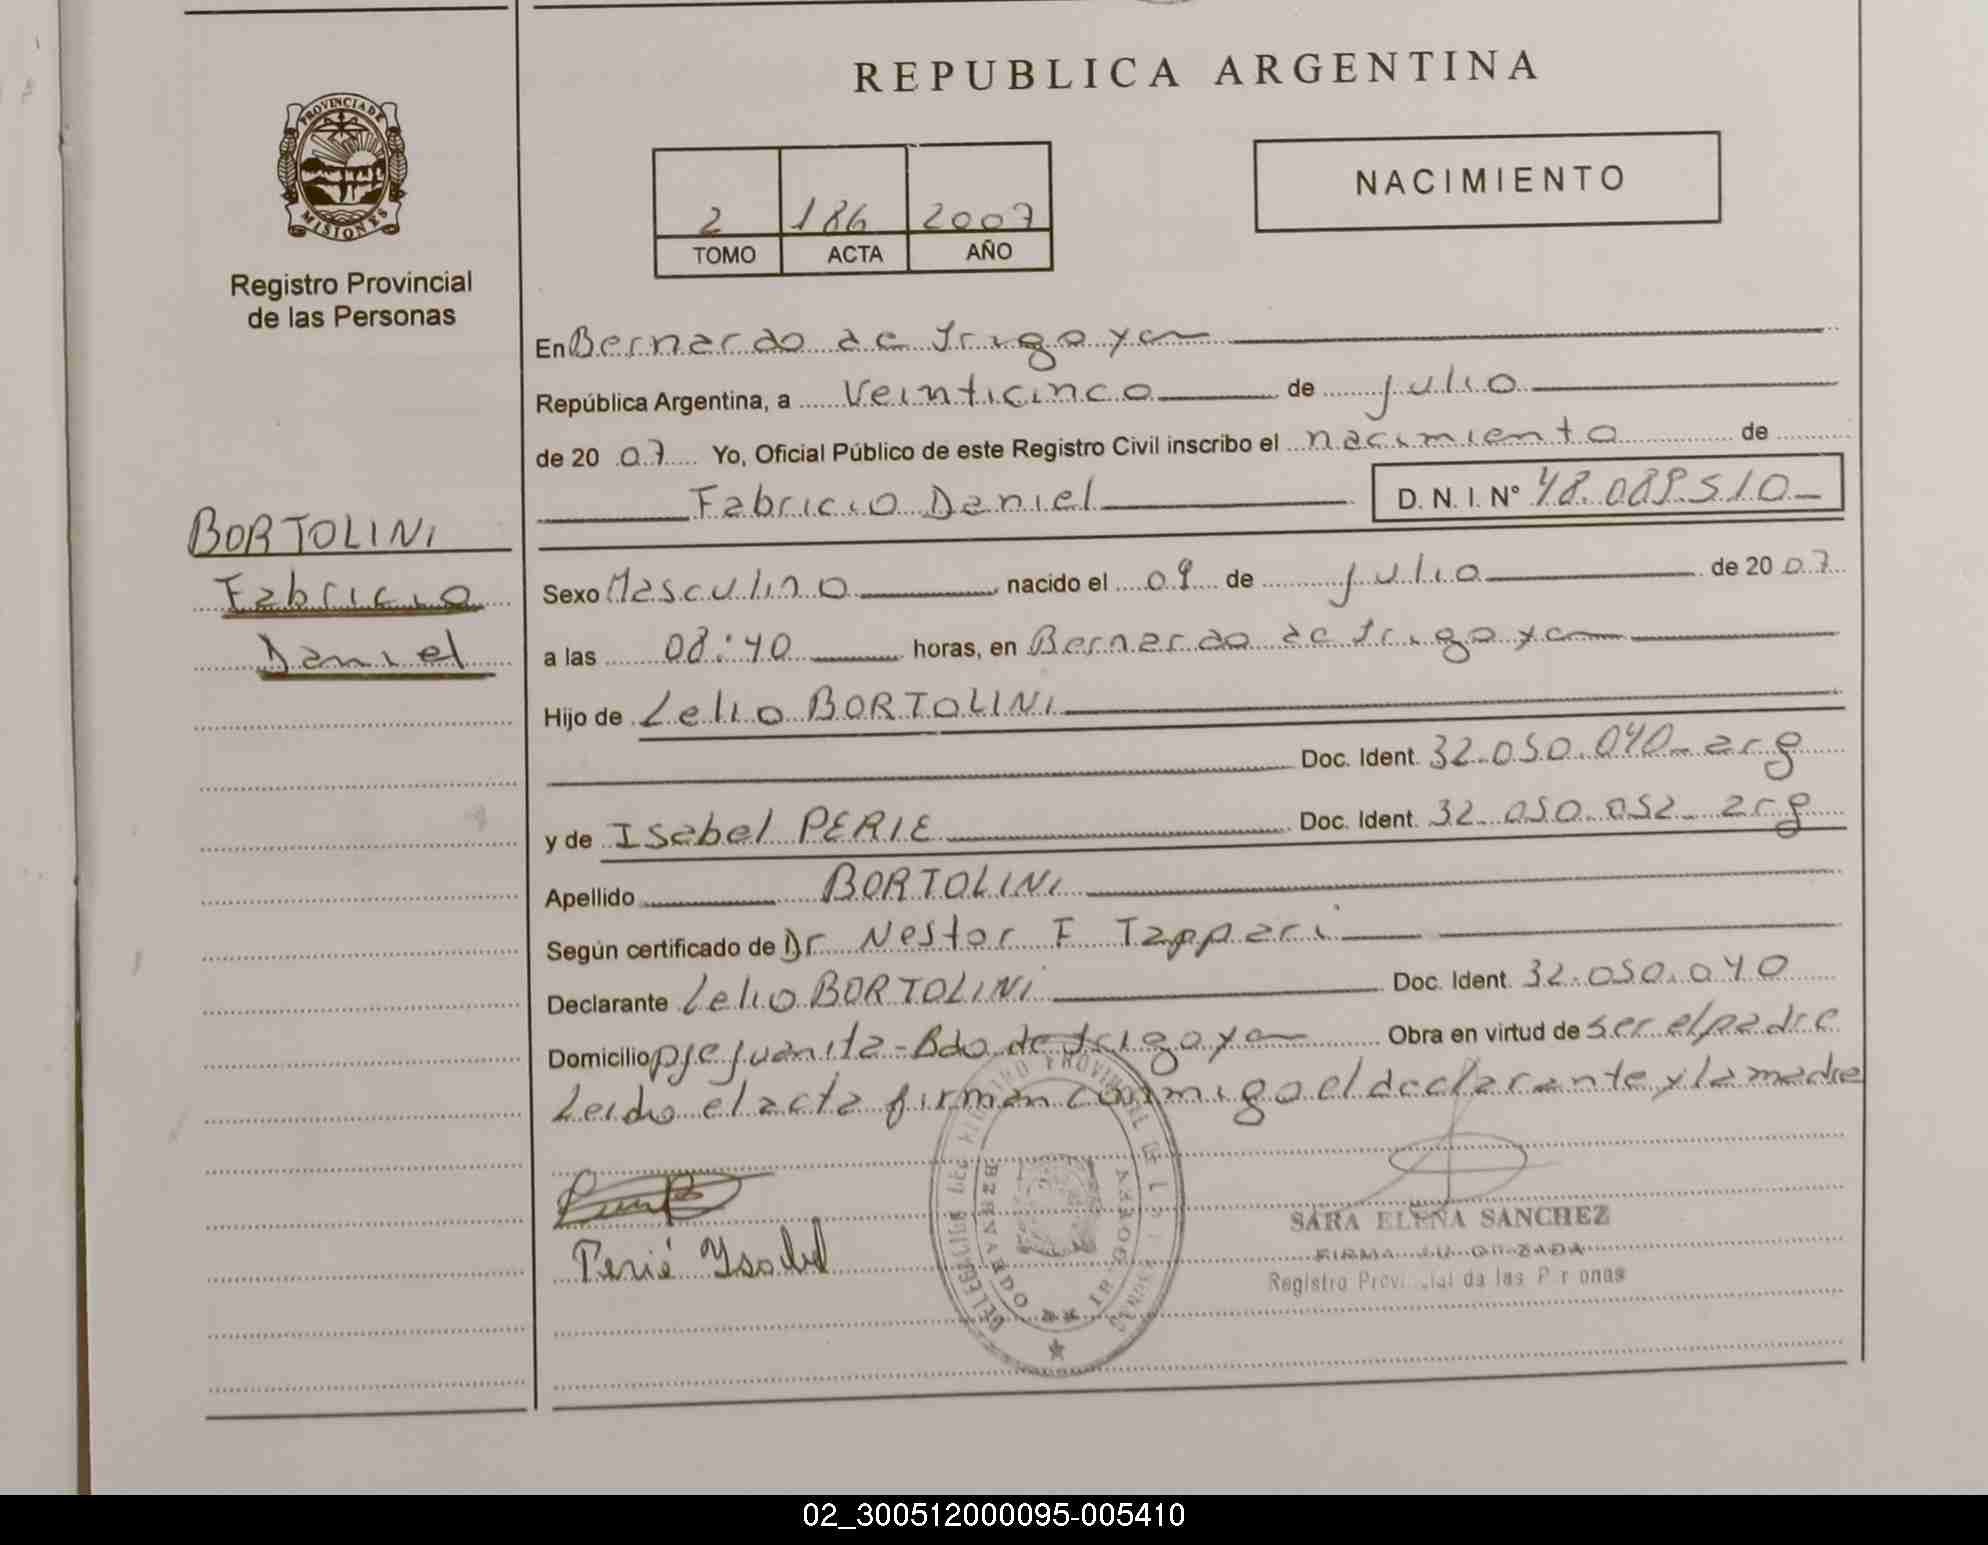 REPUBLICA ARGENTINA
PROVINCIA DE
MISIONES
Registro Provincial
de las Personas
NACIMIENTO
2 186 2007
TOMO ACTA AÑO
En Bernardo de Irigoyen
República Argentina, a Veinticinco de julio
de 20 07 Yo, Oficial Público de este Registro Civil inscribo el nacimiento de
Fabricio Daniel D. N. I. N° 48.089.510
BORTOLINI
Fabricio
Daniel
Sexo Masculino nacido el 09 de julio de 20 07
a las 08:40 horas, en Bernardo de Irigoyen
Hijo de Lelio BORTOLINI
Doc. Ident. 32.050.040 arg
y de Isabel PERIE Doc. Ident. 32.050.052 arg
Apellido BORTOLINI
Según certificado de Dr Nestor F Tappari
Declarante Lelio BORTOLINI Doc. Ident. 32.050.040
Domicilio pje Juanita - Bdo de Irigoyen Obra en virtud de ser el padre
Leido el acta firman conmigo el declarante y la madre
Perié Ysabel
SARA ELENA SANCHEZ
FIRMA AUTORIZADA
Registro Provincial de las Personas
02_300512000095-005410